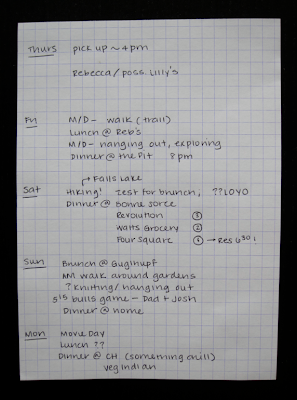 Thurs pick up ~ 4pm
Rebecca/poss. Lilly's
Fri M/D- walk (trail)
Lunch @ Reb's
M/D- hanging out, exploring
Dinner @ the Pit 8pm
Falls Lake
Sat Hiking! Zest for brunch, ??LOYO
Dinner @ Bonne Soirce
Revolution ③
Watts Grocery ②
Four Square ① → Res 6:30!
Sun Brunch @ Guglhupf
AM walk around gardens
? Knitting/hanging out
5:15 bulls game - Dad + Josh
Dinner @ home
Mon Movie Day
Lunch ??
Dinner @ CH (something chill)
veg indian